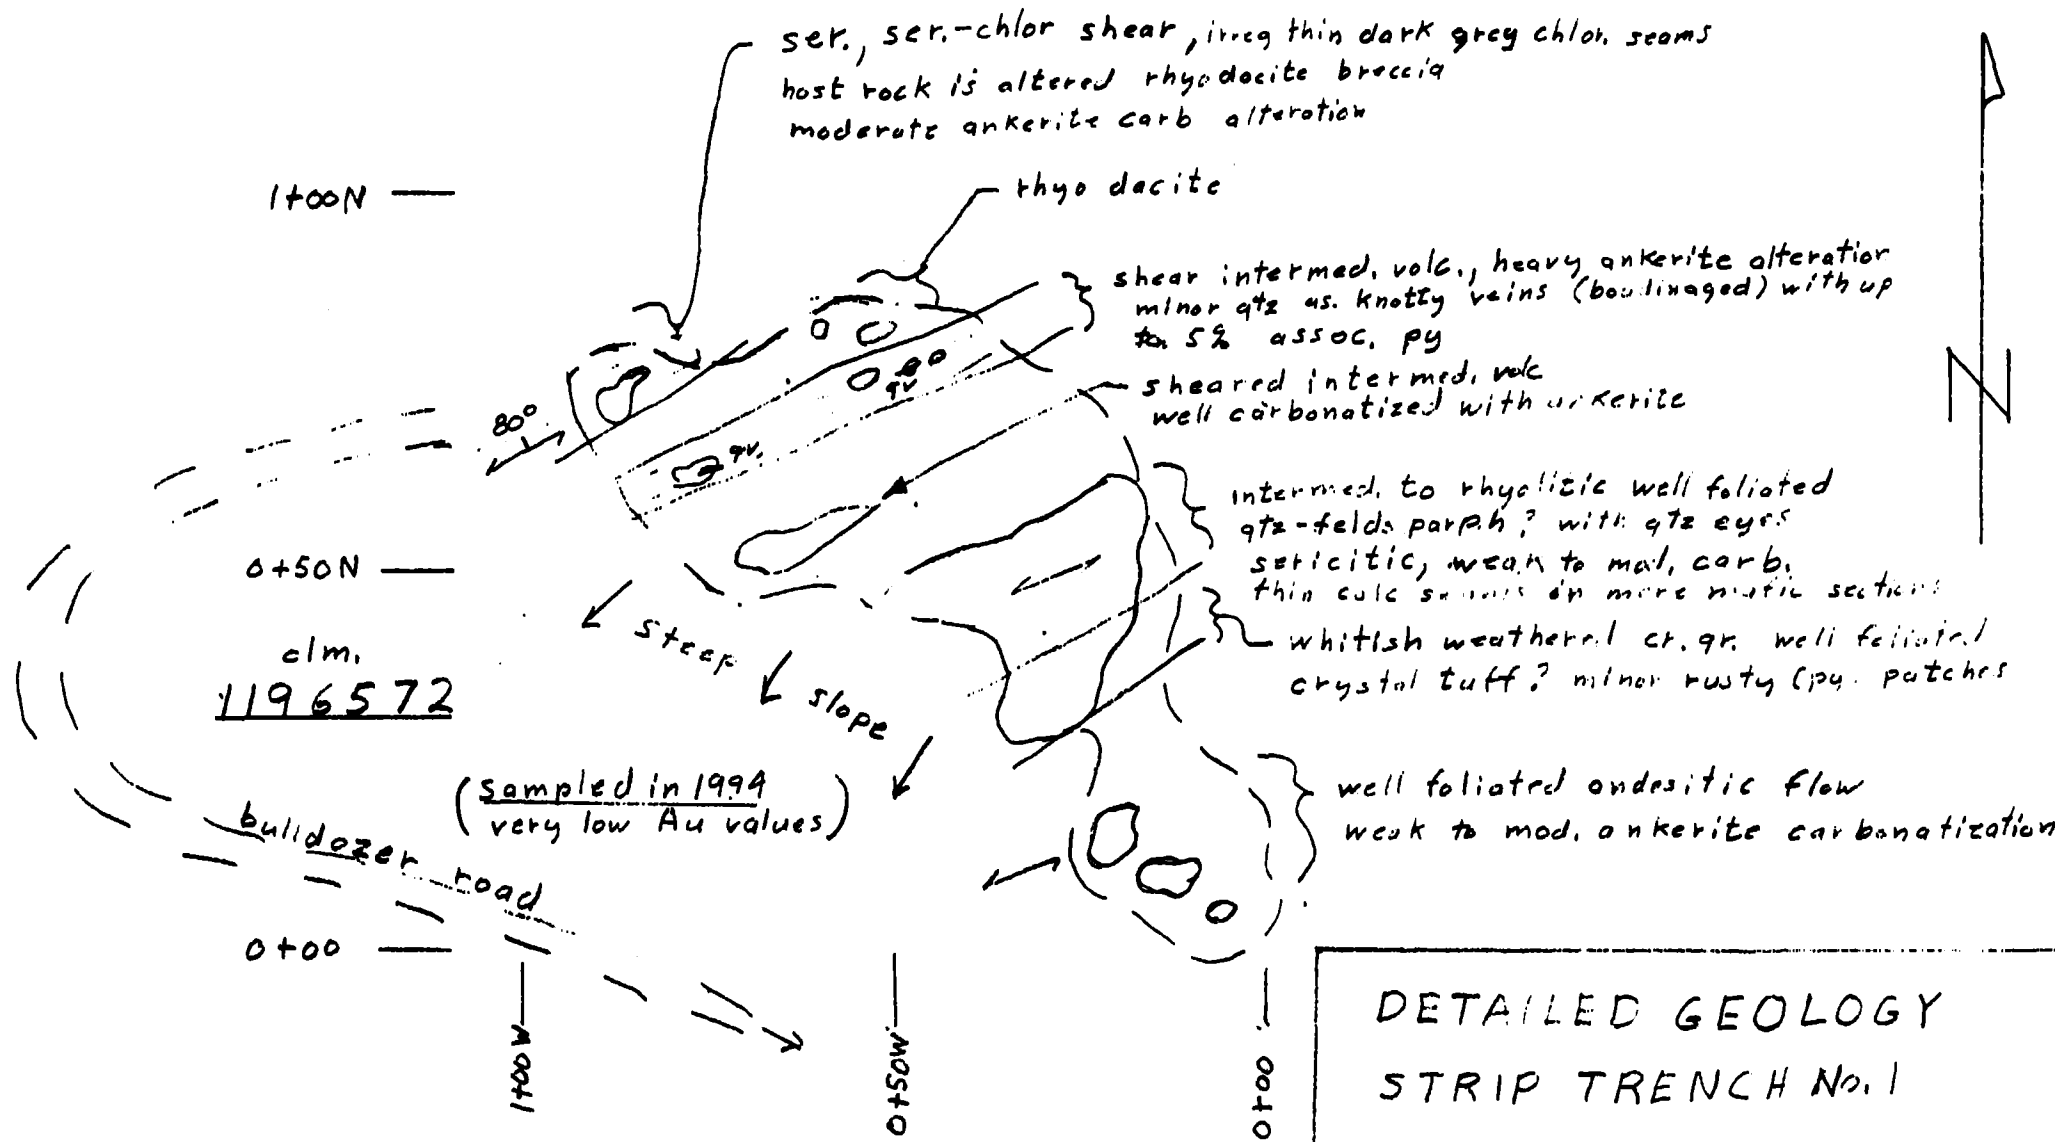 ser., ser.-chlor shear, irreg thin dark grey chlor. seams
host rock is altered rhyodacite breccia
moderate ankerite carb alteration
1+00N
rhyo dacite
shear intermed. volc., heavy ankerite alteration
minor qtz as. knotty veins (boudinaged) with up
to 5% assoc. py
sheared intermed. volc
well carbonatized with ankerite
80°
qv
qv.
intermed. to rhyolitic well foliated
qtz-felds porph? with qtz eyes
sericitic, weak to mod. carb.
thin calc seams in more mafic sections
0+50N
steep slope
clm.
1196572
whitish weathered cr. gr. well foliated
crystal tuff? minor rusty (py. patches
(sampled in 1994
very low Au values)
well foliated andesitic flow
weak to mod. ankerite carbonatization
bulldozer road
0+00
1+00W
0+50W
0+00
N
DETAILED GEOLOGY
STRIP TRENCH No. 1